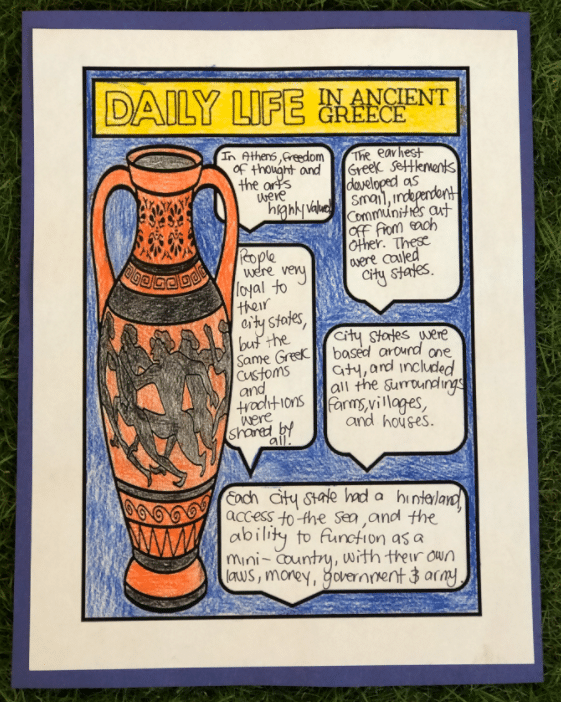 DAILY LIFE IN ANCIENT
GREECE
In Athens, freedom
of thought and
the arts
were
highly valued
The earliest
Greek settlements
developed as
small, independent
communities cut
off from each
other. These
were called
city states.
People
were very
loyal to
their
city states,
but the
same Greek
customs
and
traditions
were
shared by
all.
City states were
based around one
city, and included
all the surroundings
farms, villages,
and houses.
Each city state had a hinterland,
access to the sea, and the
ability to function as a
mini-country, with their own
laws, money, government & army.